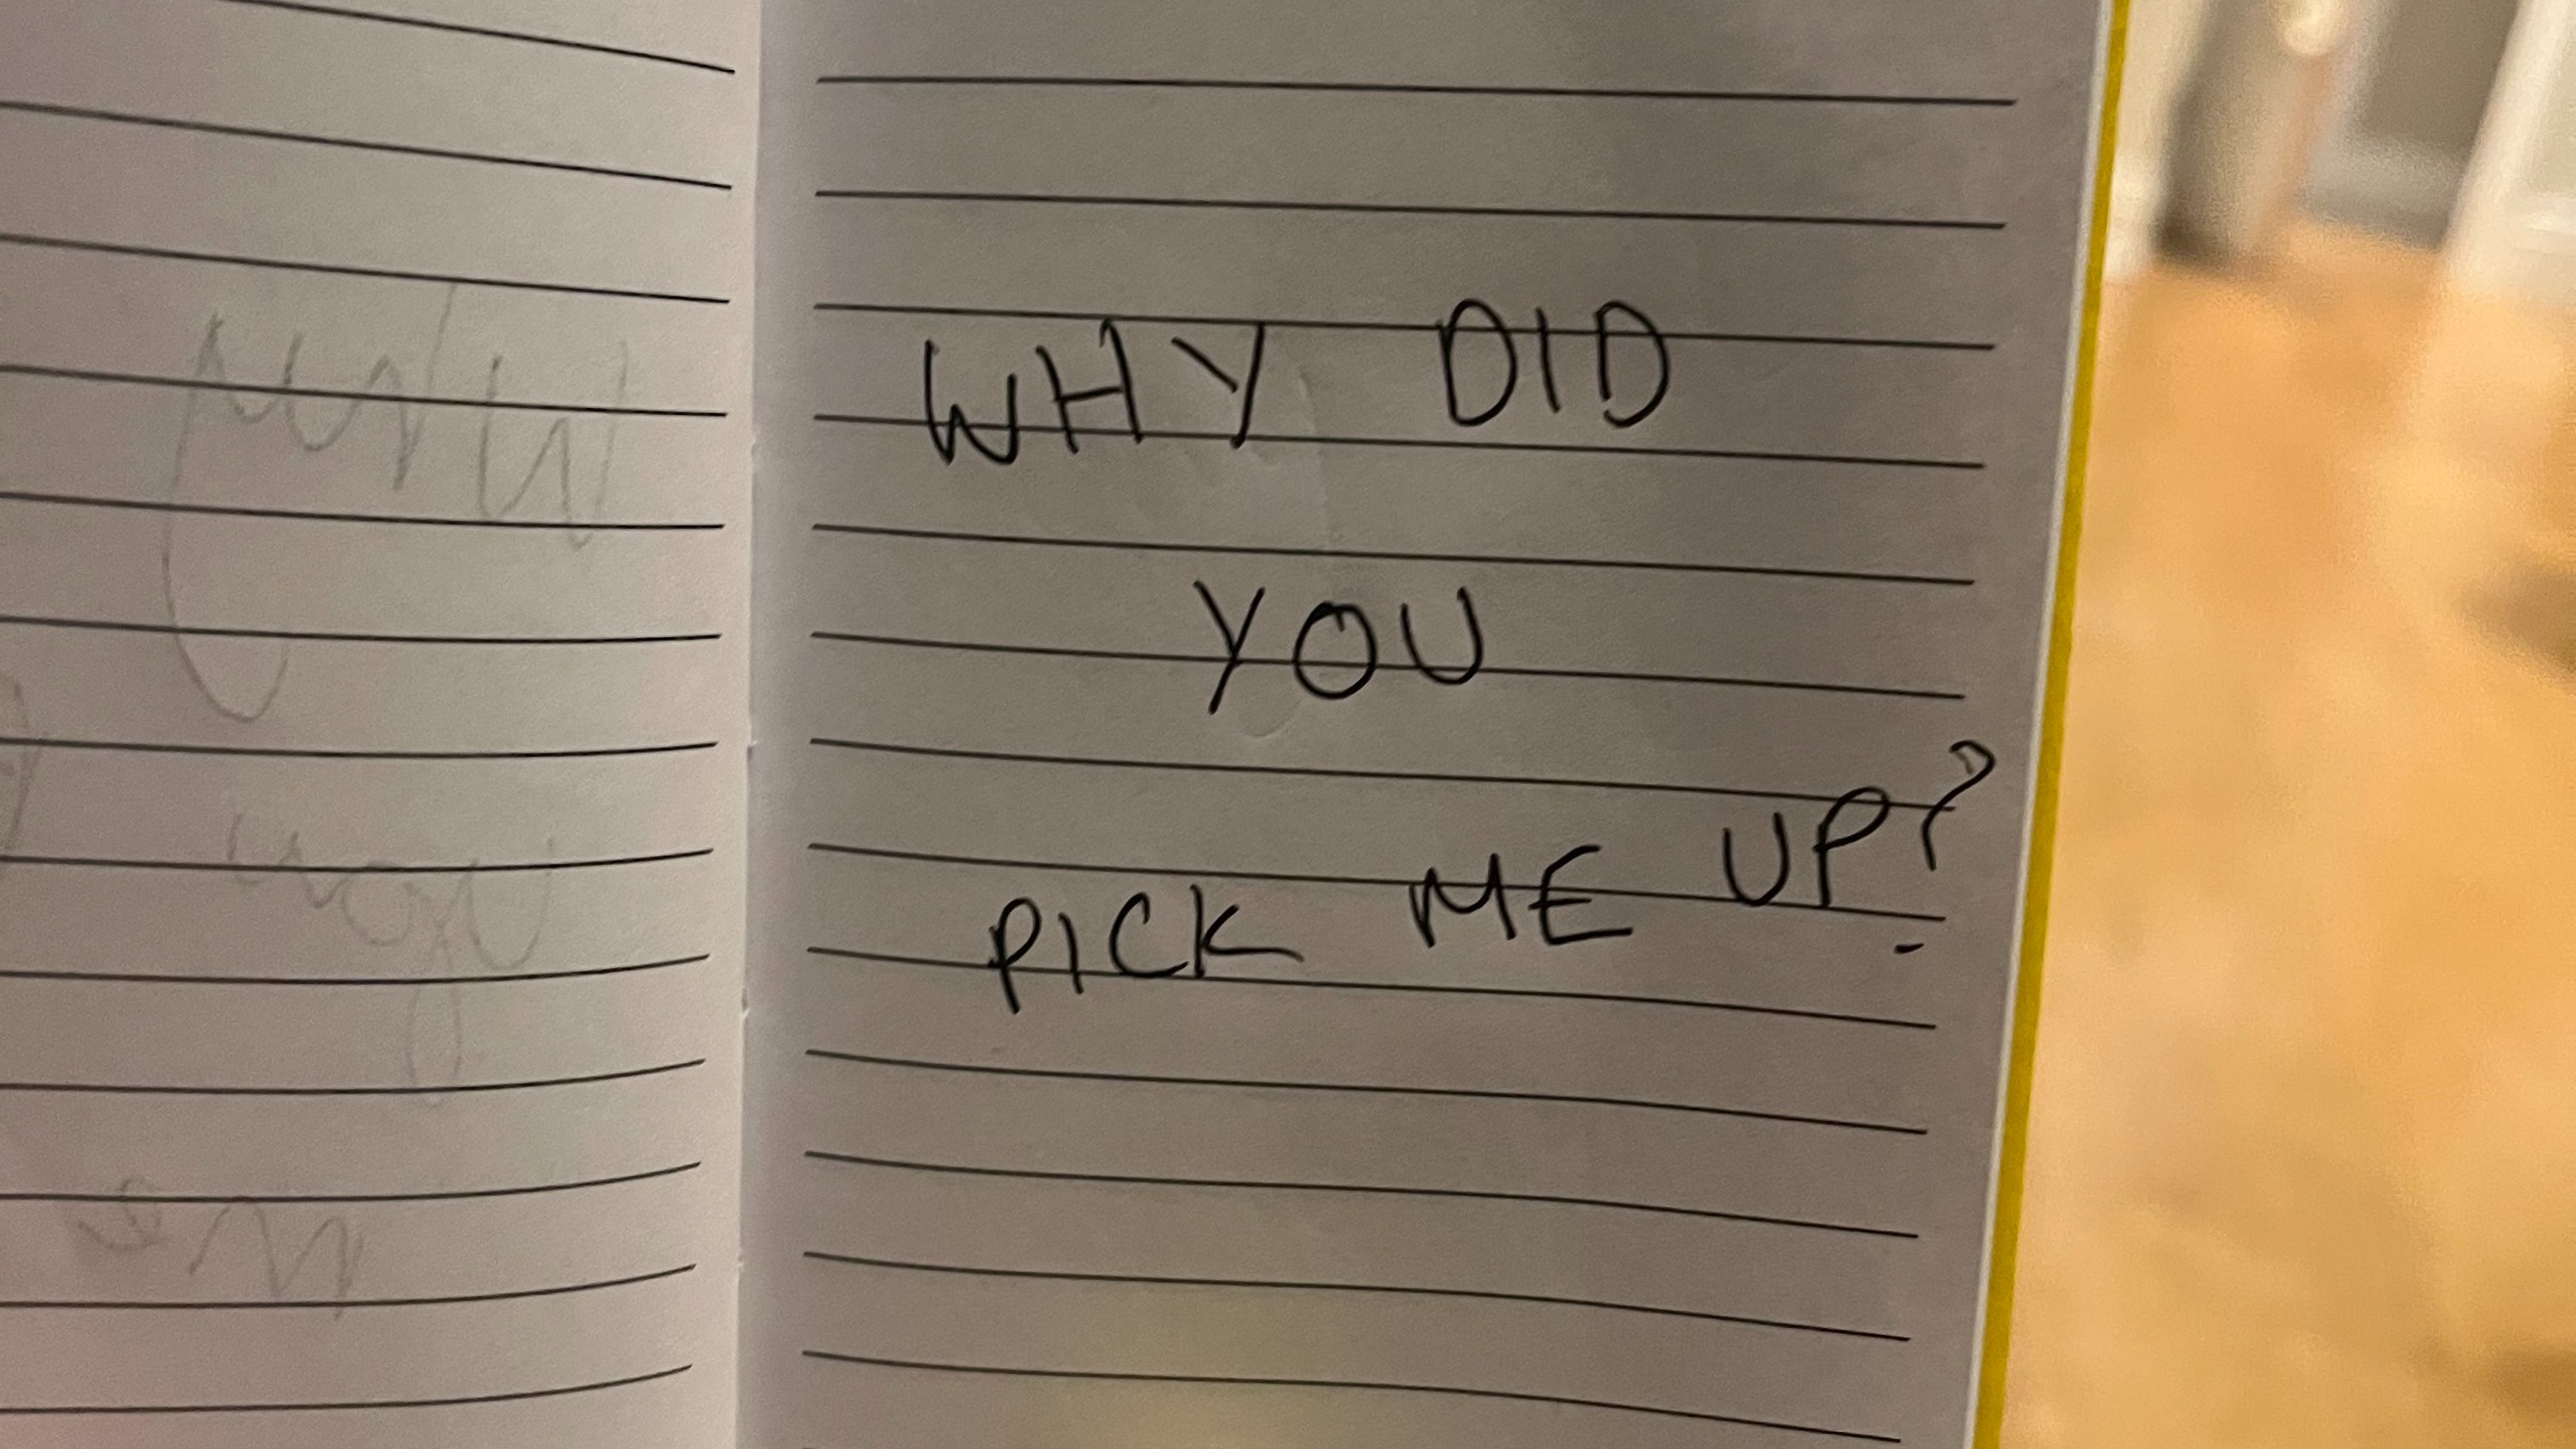 WHY DID
YOU
PICK ME UP?